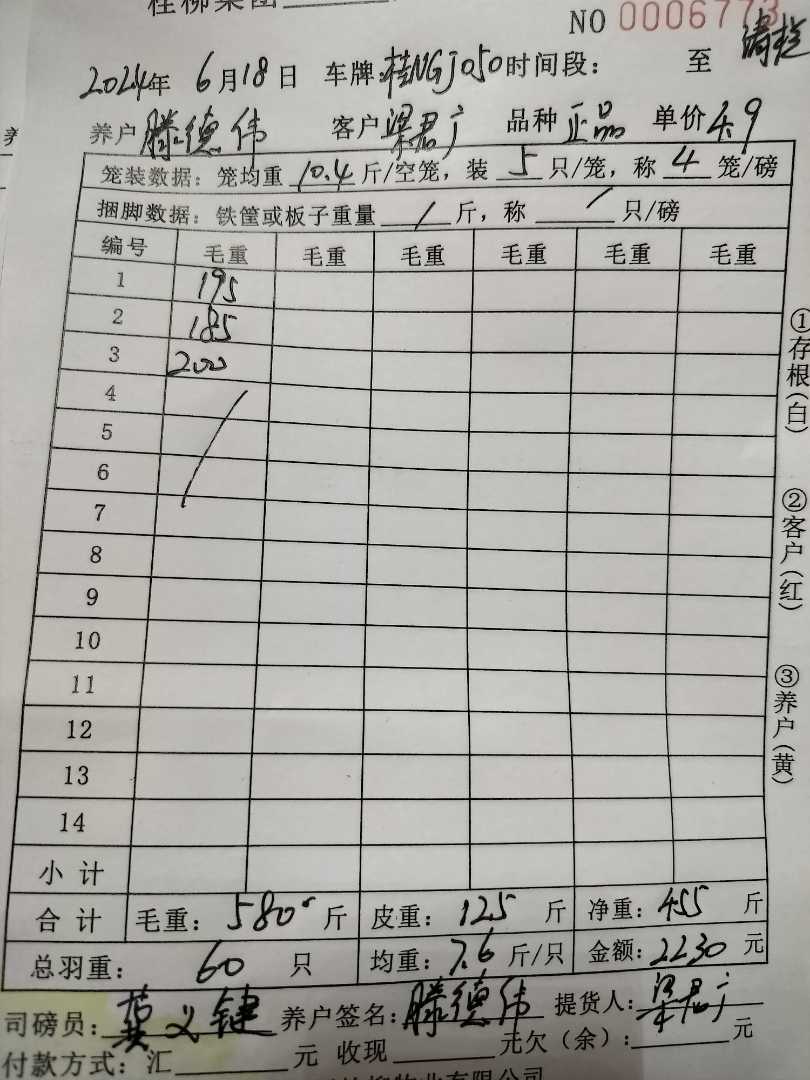 桂柳集团
NO 0006773
清栏
2024年 6月18日 车牌:桂NGJ050时间段: 至
养户 滕德伟 客户 梁君广 品种 正品 单价 4.9
笼装数据: 笼均重 10.4 斤/空笼, 装 5 只/笼, 称 4 笼/磅
捆脚数据: 铁筐或板子重量 / 斤, 称 / 只/磅
编号 毛重 毛重 毛重 毛重 毛重 毛重
1 195
2 185
3 200
4
5
6
7
8
9
10
11
12
13
14
小计
合计 毛重: 580 斤 皮重: 125 斤 净重: 455 斤
总羽重: 60 只 均重: 7.6 斤/只 金额: 2230 元
司磅员: 莫义键 养户签名: 滕德伟 提货人: 梁君广
付款方式: 汇 元 收现 元欠(余): 元
①存根(白)
②客户(红)
③养户(黄)